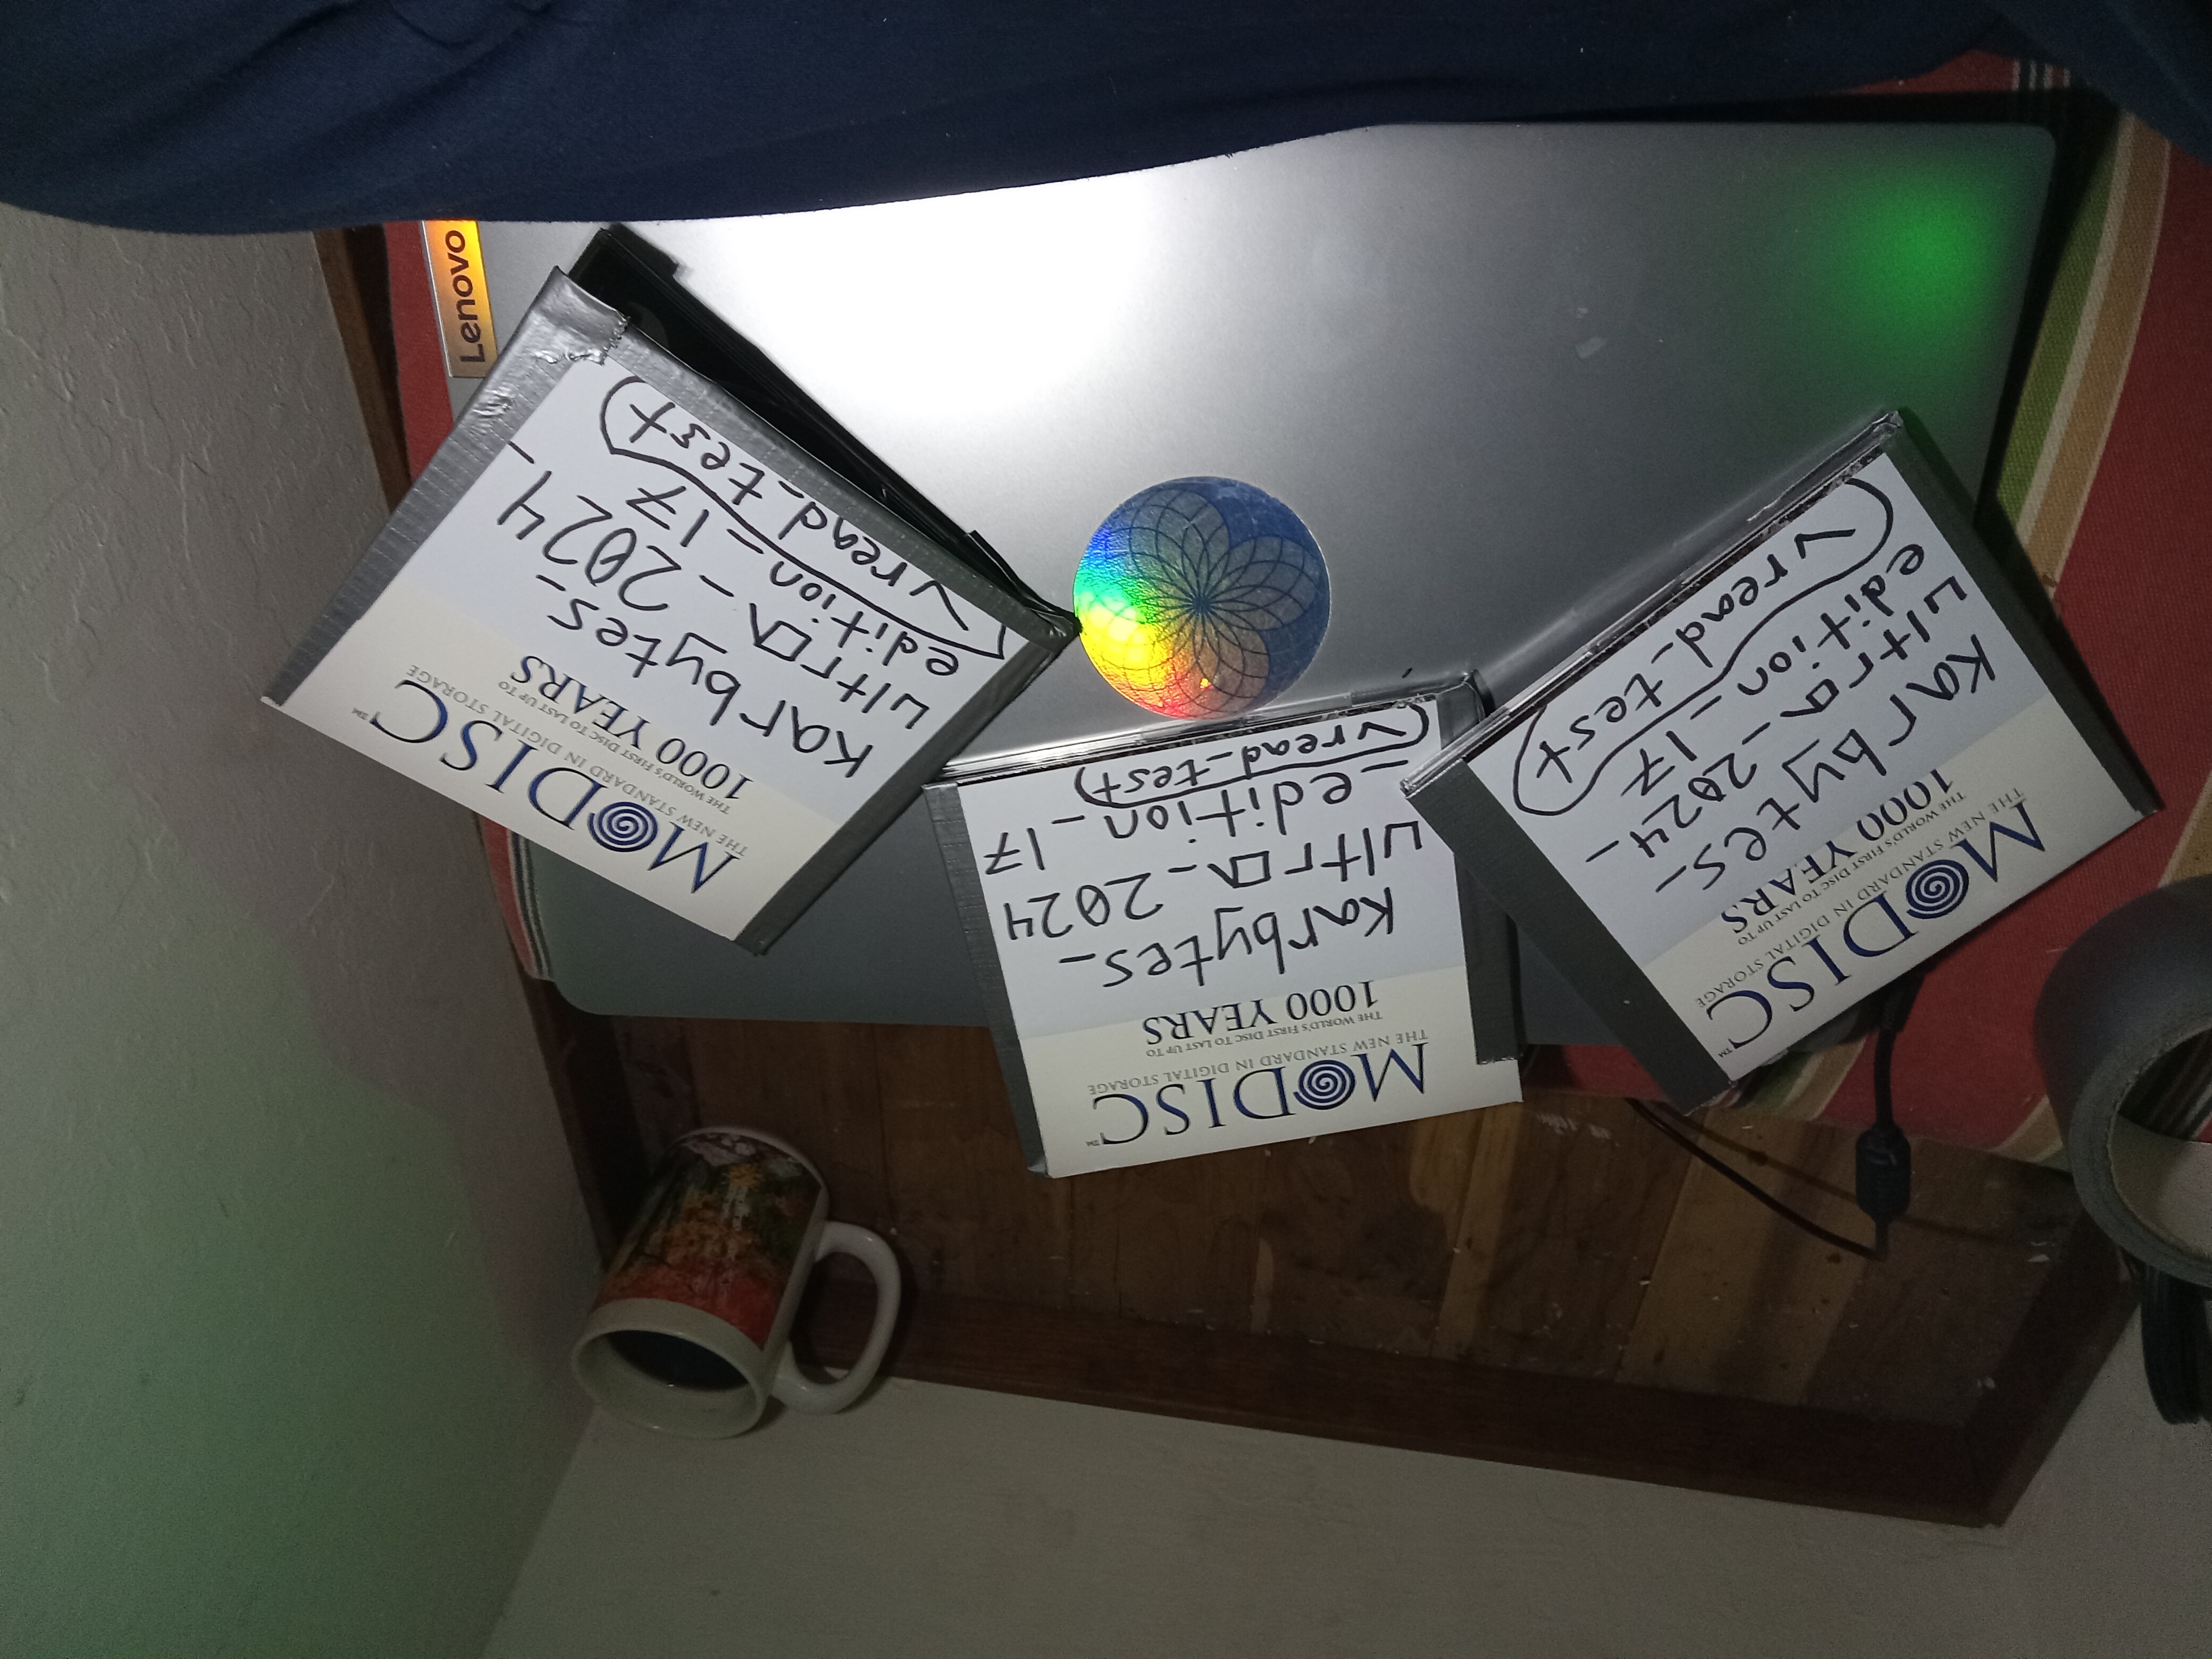 MODISC™
THE NEW STANDARD IN DIGITAL STORAGE
THE WORLD'S FIRST DISC TO LAST UP TO
1000 YEARS
Karbytes_
ultra_2024_
edition_17
✓read_test
MODISC™
THE NEW STANDARD IN DIGITAL STORAGE
THE WORLD'S FIRST DISC TO LAST UP TO
1000 YEARS
Karbytes_
ultra_2024
_edition_17
✓read_test
MODISC™
THE NEW STANDARD IN DIGITAL STORAGE
THE WORLD'S FIRST DISC TO LAST UP TO
1000 YEARS
Karbytes_
ultra_2024_
edition_17
✓read_test
Lenovo